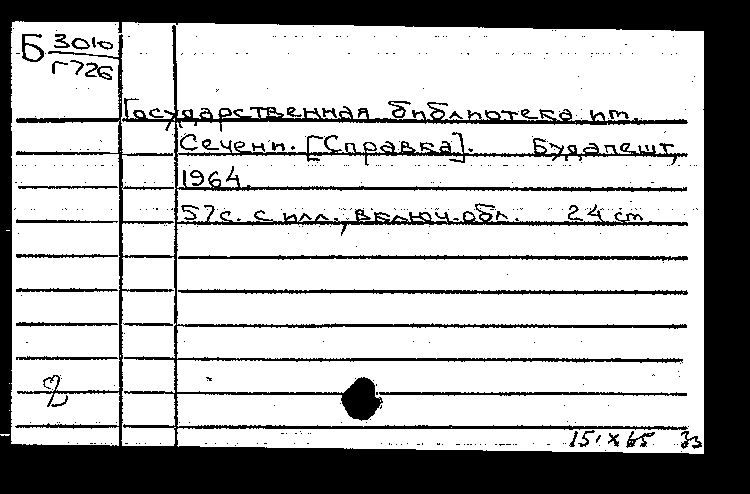 Б 3010
Г726
Государственная библиотека им.
Сечени. [Справка]. Будапешт,
1964.
57с. с илл., включ. обл. 24 cm
15.X 65 33